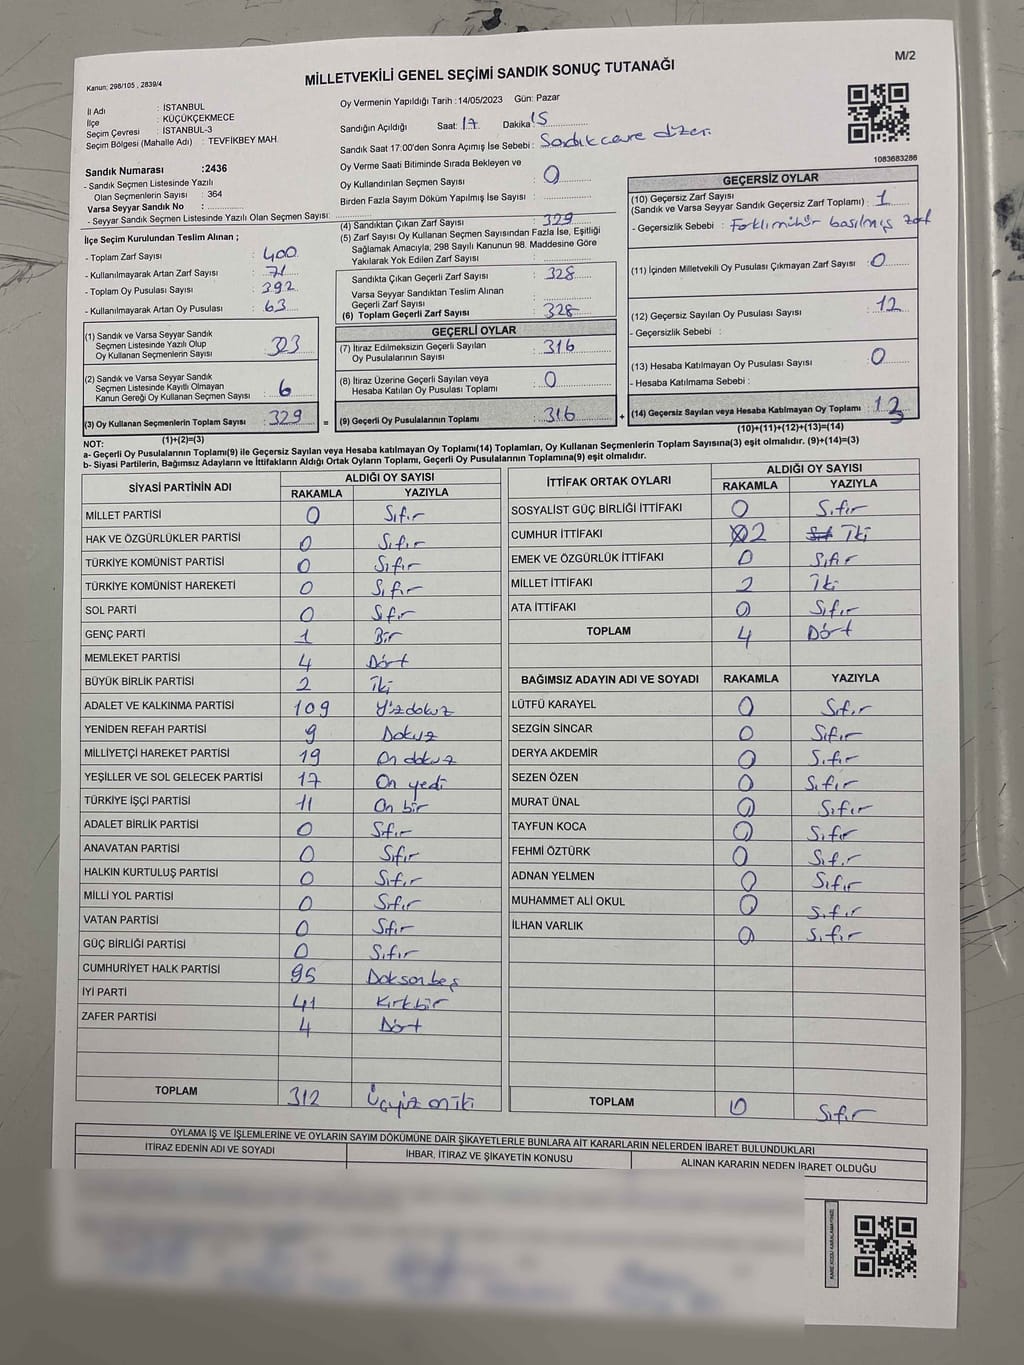 M/2
Kanun: 298/105 , 2839/4
MİLLETVEKİLİ GENEL SEÇİMİ SANDIK SONUÇ TUTANAĞI
İl Adı : İSTANBUL
İlçe : KÜÇÜKÇEKMECE
Seçim Çevresi : İSTANBUL-3
Seçim Bölgesi (Mahalle Adı) : TEVFİKBEY MAH.
Sandık Numarası :2436
- Sandık Seçmen Listesinde Yazılı
Olan Seçmenlerin Sayısı : 364
Varsa Seyyar Sandık No :
- Seyyar Sandık Seçmen Listesinde Yazılı Olan Seçmen Sayısı:
Oy Vermenin Yapıldığı Tarih :14/05/2023 Gün: Pazar
Sandığın Açıldığı Saat: 17 Dakika 15
Sandık Saat 17:00'den Sonra Açımış İse Sebebi : Sandık çevre düzeni
Oy Verme Saati Bitiminde Sırada Bekleyen ve
Oy Kullandırılan Seçmen Sayısı : 0
Birden Fazla Sayım Döküm Yapılmış İse Sayısı :
1083683286
İlçe Seçim Kurulundan Teslim Alınan ;
- Toplam Zarf Sayısı : 400
- Kullanılmayarak Artan Zarf Sayısı : 71
- Toplam Oy Pusulası Sayısı : 392
- Kullanılmayarak Artan Oy Pusulası : 63
(1) Sandık ve Varsa Seyyar Sandık
Seçmen Listesinde Yazılı Olup
Oy Kullanan Seçmenlerin Sayısı : 323
(2) Sandık ve Varsa Seyyar Sandık
Seçmen Listesinde Kayıtlı Olmayan
Kanun Gereği Oy Kullanan Seçmen Sayısı : 6
(3) Oy Kullanan Seçmenlerin Toplam Sayısı : 329
(1)+(2)=(3)
(4) Sandıktan Çıkan Zarf Sayısı : 329
(5) Zarf Sayısı Oy Kullanan Seçmen Sayısından Fazla İse, Eşitliği
Sağlamak Amacıyla; 298 Sayılı Kanunun 98. Maddesine Göre
Yakılarak Yok Edilen Zarf Sayısı :
Sandıkta Çıkan Geçerli Zarf Sayısı : 328
Varsa Seyyar Sandıktan Teslim Alınan
Geçerli Zarf Sayısı :
(6) Toplam Geçerli Zarf Sayısı : 328
GEÇERLİ OYLAR
(7) İtiraz Edilmeksizin Geçerli Sayılan
Oy Pusulalarının Sayısı : 316
(8) İtiraz Üzerine Geçerli Sayılan veya
Hesaba Katılan Oy Pusulası Toplamı : 0
= (9) Geçerli Oy Pusulalarının Toplamı : 316
GEÇERSİZ OYLAR
(10) Geçersiz Zarf Sayısı
(Sandık ve Varsa Seyyar Sandık Geçersiz Zarf Toplamı) : 1
- Geçersizlik Sebebi : Farklı mühür basılmış zarf
(11) İçinden Milletvekili Oy Pusulası Çıkmayan Zarf Sayısı : 0
(12) Geçersiz Sayılan Oy Pusulası Sayısı : 12
- Geçersizlik Sebebi :
(13) Hesaba Katılmayan Oy Pusulası Sayısı : 0
- Hesaba Katılmama Sebebi :
+ (14) Geçersiz Sayılan veya Hesaba Katılmayan Oy Toplamı : 13
(10)+(11)+(12)+(13)=(14)
NOT:
a- Geçerli Oy Pusulalarının Toplamı(9) ile Geçersiz Sayılan veya Hesaba katılmayan Oy Toplamı(14) Toplamları, Oy Kullanan Seçmenlerin Toplam Sayısına(3) eşit olmalıdır. (9)+(14)=(3)
b- Siyasi Partilerin, Bağımsız Adayların ve İttifakların Aldığı Ortak Oyların Toplamı, Geçerli Oy Pusulalarının Toplamına(9) eşit olmalıdır.
SİYASİ PARTİNİN ADI ALDIĞI OY SAYISI
RAKAMLA YAZIYLA
MİLLET PARTİSİ 0 Sıfır
HAK VE ÖZGÜRLÜKLER PARTİSİ 0 Sıfır
TÜRKİYE KOMÜNİST PARTİSİ 0 Sıfır
TÜRKİYE KOMÜNİST HAREKETİ 0 Sıfır
SOL PARTİ 0 Sıfır
GENÇ PARTİ 1 Bir
MEMLEKET PARTİSİ 4 Dört
BÜYÜK BİRLİK PARTİSİ 2 İki
ADALET VE KALKINMA PARTİSİ 109 Yüzdokuz
YENİDEN REFAH PARTİSİ 9 Dokuz
MİLLİYETÇİ HAREKET PARTİSİ 19 On dokuz
YEŞİLLER VE SOL GELECEK PARTİSİ 17 On yedi
TÜRKİYE İŞÇİ PARTİSİ 11 On bir
ADALET BİRLİK PARTİSİ 0 Sıfır
ANAVATAN PARTİSİ 0 Sıfır
HALKIN KURTULUŞ PARTİSİ 0 Sıfır
MİLLİ YOL PARTİSİ 0 Sıfır
VATAN PARTİSİ 0 Sıfır
GÜÇ BİRLİĞİ PARTİSİ 0 Sıfır
CUMHURİYET HALK PARTİSİ 95 Doksanbeş
İYİ PARTİ 41 Kırkbir
ZAFER PARTİSİ 4 Dört
TOPLAM 312 Üçyüz oniki
İTTİFAK ORTAK OYLARI ALDIĞI OY SAYISI
RAKAMLA YAZIYLA
SOSYALİST GÜÇ BİRLİĞİ İTTİFAKI 0 Sıfır
CUMHUR İTTİFAKI 2 İki
EMEK VE ÖZGÜRLÜK İTTİFAKI 0 Sıfır
MİLLET İTTİFAKI 2 İki
ATA İTTİFAKI 0 Sıfır
TOPLAM 4 Dört
BAĞIMSIZ ADAYIN ADI VE SOYADI RAKAMLA YAZIYLA
LÜTFÜ KARAYEL 0 Sıfır
SEZGİN SİNCAR 0 Sıfır
DERYA AKDEMİR 0 Sıfır
SEZEN ÖZEN 0 Sıfır
MURAT ÜNAL 0 Sıfır
TAYFUN KOCA 0 Sıfır
FEHMİ ÖZTÜRK 0 Sıfır
ADNAN YELMEN 0 Sıfır
MUHAMMET ALİ OKUL 0 Sıfır
İLHAN VARLIK 0 Sıfır
TOPLAM 0 Sıfır
OYLAMA İŞ VE İŞLEMLERİNE VE OYLARIN SAYIM DÖKÜMÜNE DAİR ŞİKAYETLERLE BUNLARA AİT KARARLARIN NELERDEN İBARET BULUNDUKLARI
İTİRAZ EDENİN ADI VE SOYADI İHBAR, İTİRAZ VE ŞİKAYETİN KONUSU ALINAN KARARIN NEDEN İBARET OLDUĞU
KARE KODU KARALAMAYINIZ